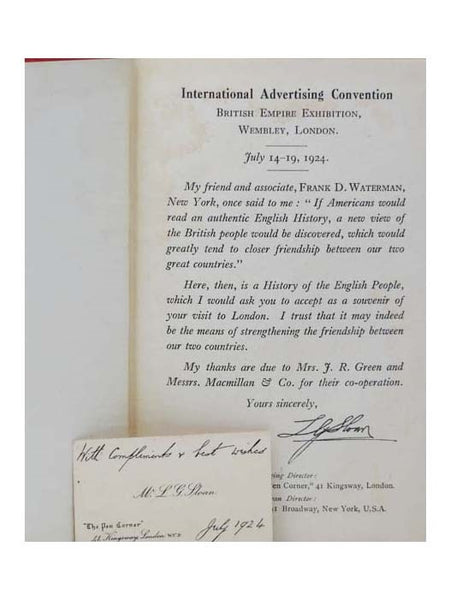 International Advertising Convention
British Empire Exhibition,
Wembley, London.
July 14–19, 1924.
My friend and associate, Frank D. Waterman,
New York, once said to me : “ If Americans would
read an authentic English History, a new view of
the British people would be discovered, which would
greatly tend to closer friendship between our two
great countries.”
Here, then, is a History of the English People,
which I would ask you to accept as a souvenir of
your visit to London. I trust that it may indeed
be the means of strengthening the friendship between
our two countries.
My thanks are due to Mrs. J. R. Green and
Messrs. Macmillan & Co. for their co-operation.
Yours sincerely,
L G Sloan
ing Director :
en Corner," 41 Kingsway, London.
an Director :
1 Broadway, New York, U.S.A.
With Compliments & best wishes
Mr. L. G. Sloan
"The Pen Corner"
41, Kingsway, London W.C.2
July 1924